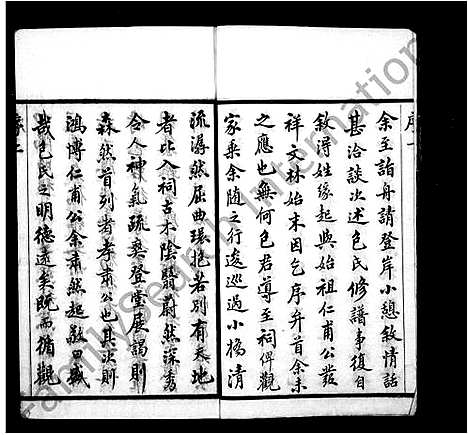 序一
余至詣舟請登岸小憩敘情話
甚洽談次述包氏修譜事復自
敘得姓緣起與始祖仁甫公發
祥文林始末因乞序弁首余未
之應也無何包君導至祠俾觀
家乘余隨之行逡巡過小橋清
流潺然屈曲環抱若別有天地
者比入祠古木陰翳蔚然深秀
令人神氣疏爽登堂展謁則
森然首列者孝肅公也其次則
鴻博仁甫公余肅然起敬曰盛
哉包氏之明德遠矣既而循觀
序二
FamilySearch International